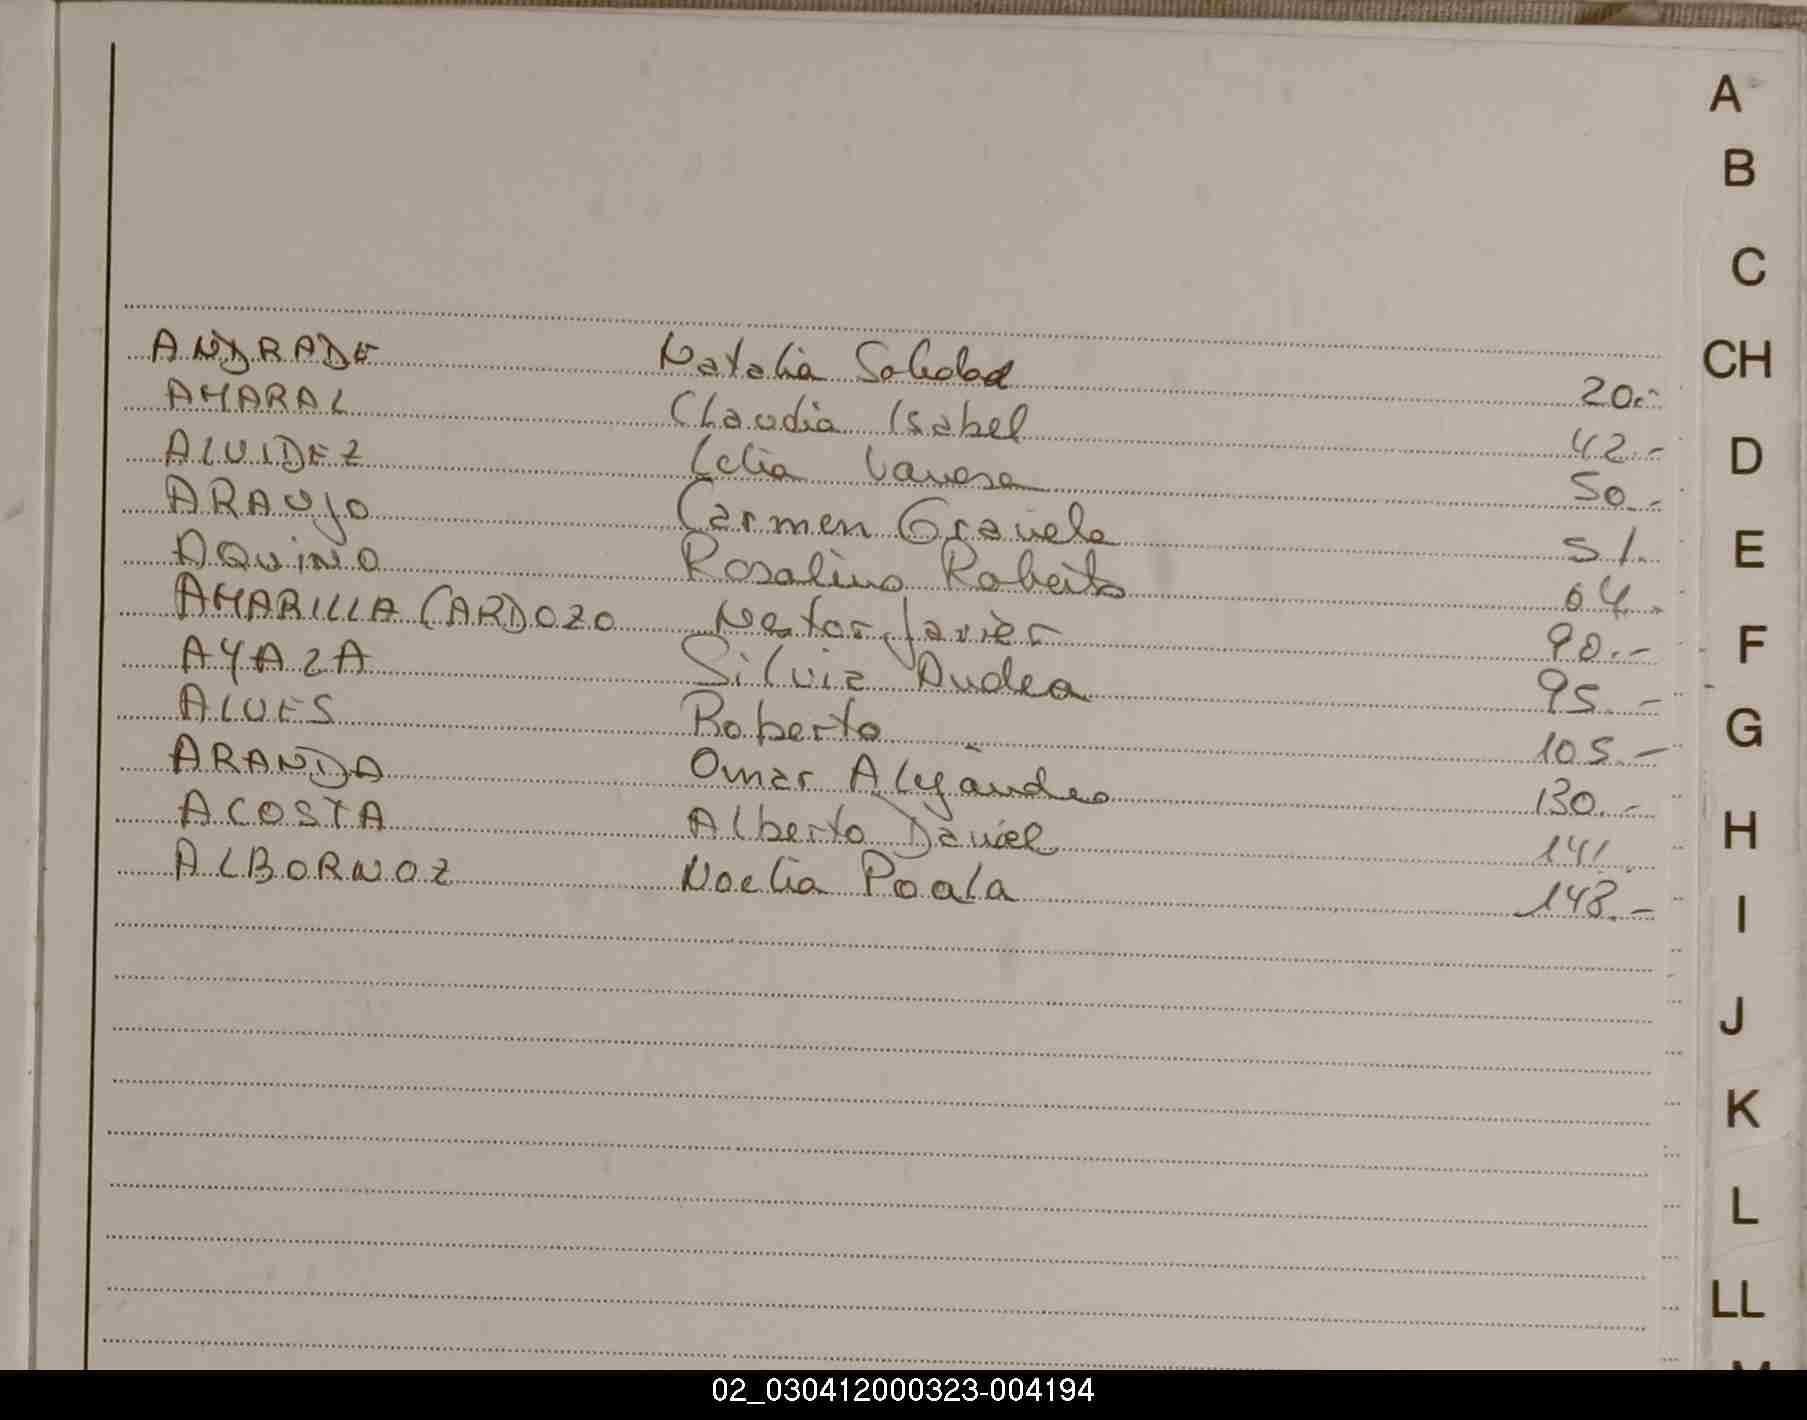 A
B
C
CH
D
E
F
G
H
I
J
K
L
LL
M
ANDRADE Natalia Soledad 20.-
AMARAL Claudia Isabel 42.-
ALVIDEZ Lelia Vanesa 50.-
ARAUJO Carmen Graciela 51.
AQUINO Rosalino Roberto 64.-
AMARILLA CARDOZO Nestor Javier 90.-
AYALA Silvia Andrea 95.-
ALVES Roberto 105.-
ARANDA Omar Alejandro 130.-
ACOSTA Alberto Daniel 141.
ALBORNOZ Noelia Poala 148.-
02_030412000323-004194